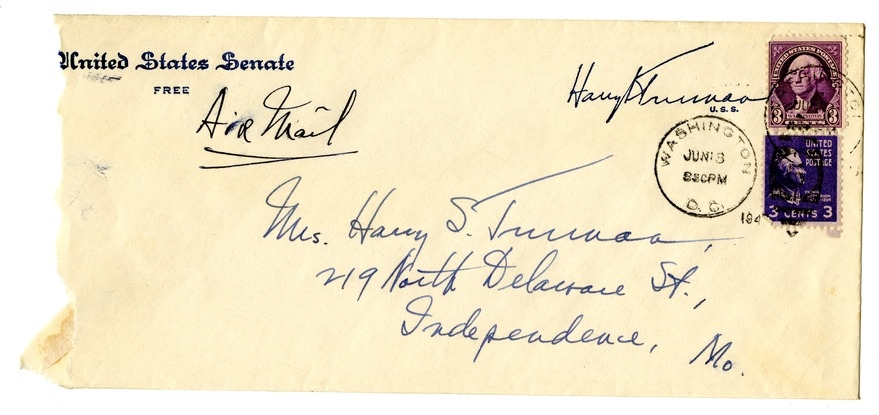 United States Senate
FREE
Air Mail
Harry S Truman
U.S.S.
WASHINGTON
JUN 18
8 30 PM
D. C.
194
UNITED STATES POSTAGE
3 WASHINGTON 3
CENTS
UNITED
STATES
POSTAGE
3 CENTS 3
Mrs. Harry S. Truman,
219 North Delaware St.,
Independence, Mo.